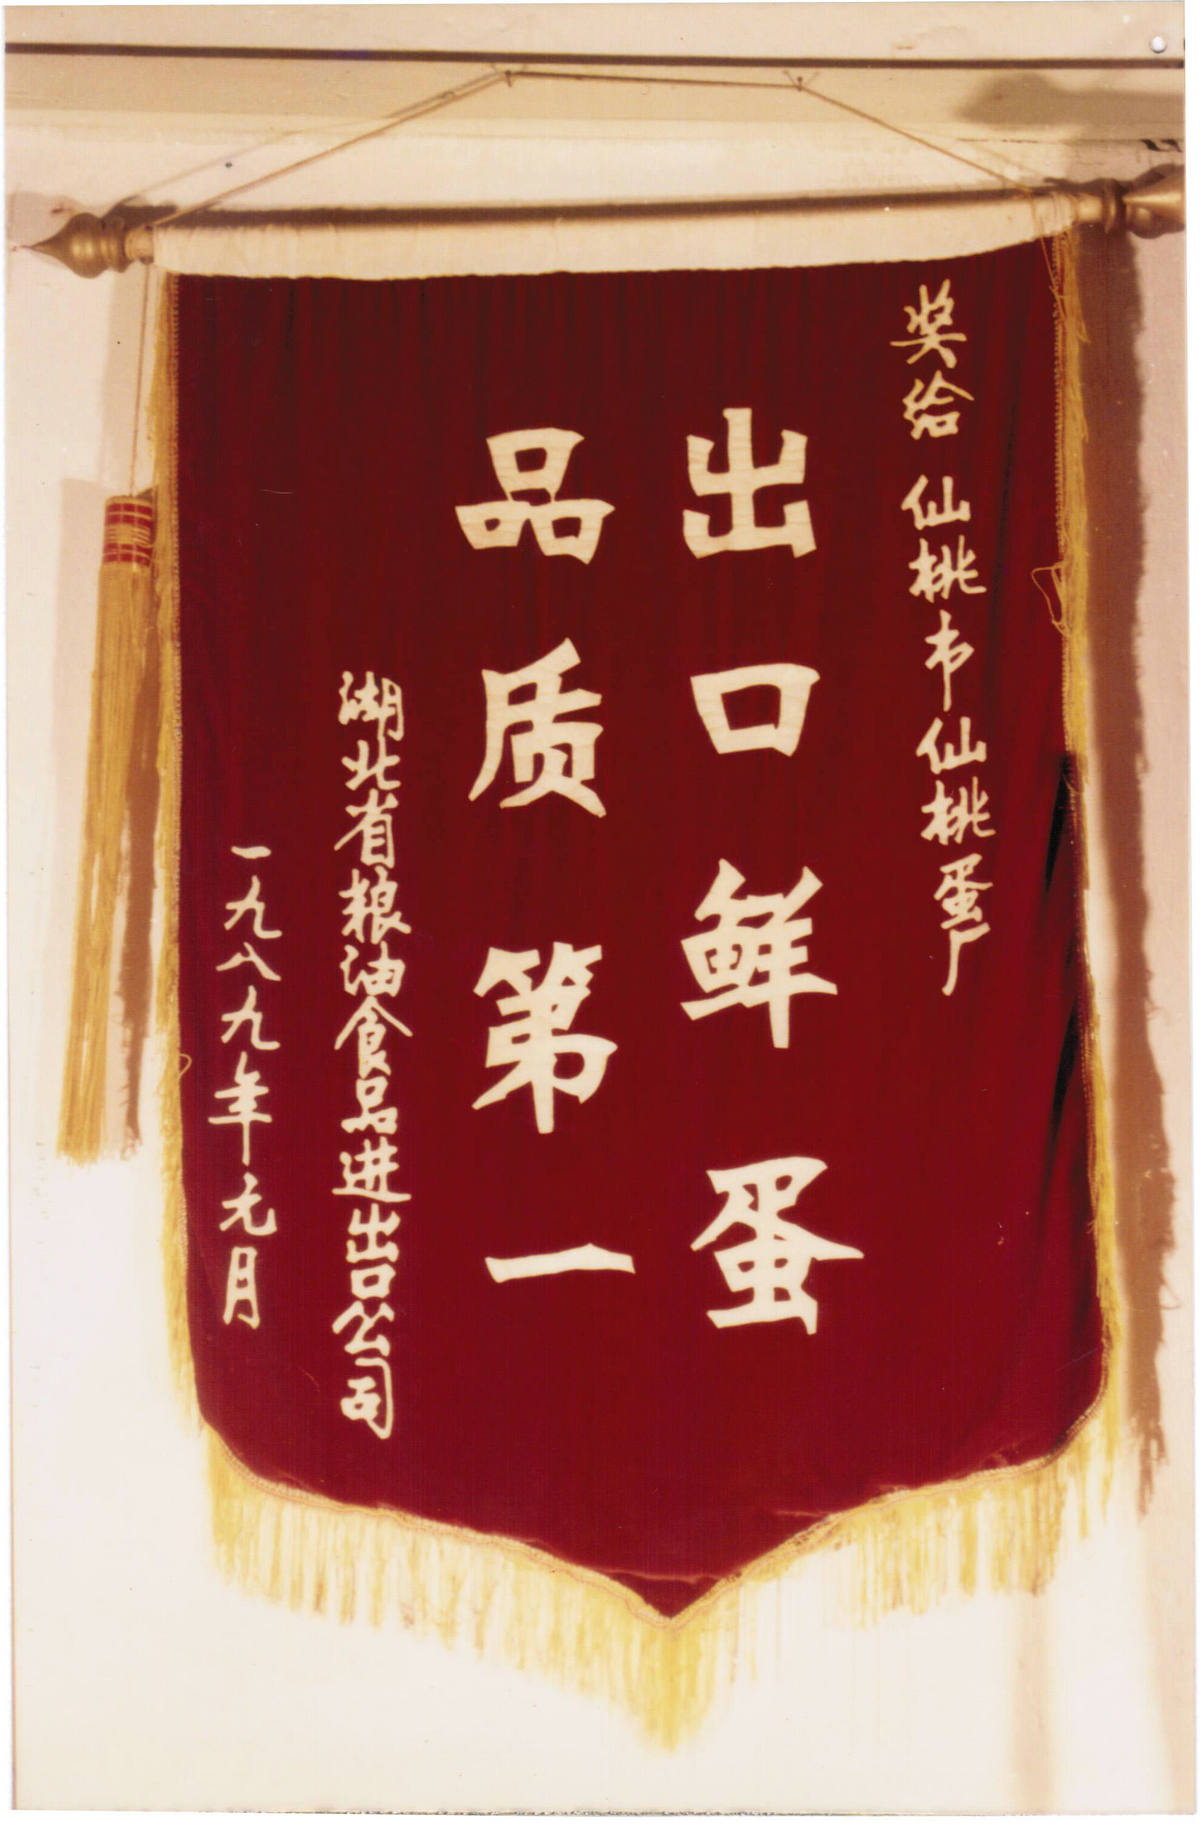 奖给 仙桃市仙桃蛋厂
出口鲜蛋
品质第一
湖北省粮油食品进出口公司
一九八九年元月